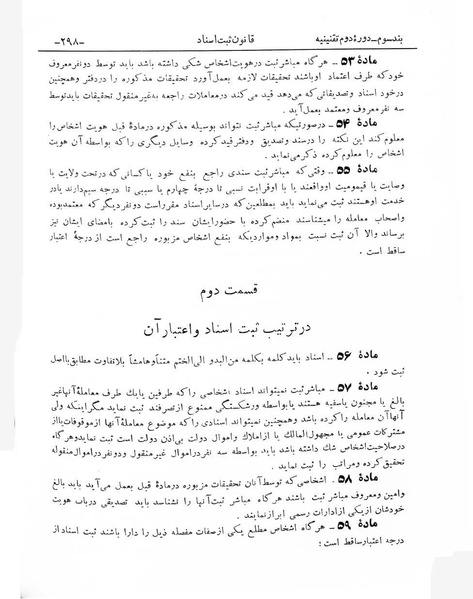 بندسوم ـ دورهٔ دوم تقنینیه    قانون ثبت اسناد    ـ۲۹۸ـ
مادهٔ ۵۳ ـ هرگاه مباشر ثبت درهویت اشخاص شکی داشته باشد باید توسط دونفرمعروف
خودکه طرف اعتماد اوباشند تحقیقات لازمه بعمل آورد تحقیقات مذکوره را دردفتر وهمچنین
درخود اسناد وتصدیقاتی که میدهد قید می کند درمعاملات راجعه بغیرمنقول تحقیقات بایدتوسط
سه نفرمعروف ومعتمد بعمل آید.
مادهٔ ۵۴ ـ درصورتیکه مباشر ثبت نتواند بوسیله مذکوره درمادهٔ قبل هویت اشخاص را
معلوم کند این نکته را درسند وتصدیق ودفترقیدکرده وسایل دیگری را که بواسطه آن هویت
اشخاص را معلوم کرده ذکرمی نماید.
مادهٔ ۵۵ ـ وقتی که مباشر ثبت سندی راجع بنفع خود یاکسانی که درتحت ولایت یا
وصایت یا قیمومیت اوواقعند یا با اوقرابت نسبی تا درجهٔ چهارم یا سببی تا درجه سیم دارند یادر
خدمت اوهستند ثبت می نماید باید بمطلعین که درسایر اسناد مقرراست دونفر دیگر که معتمدبوده
واصحاب معامله را میشناسند منضم کرده با حضورایشان سند را ثبت کرده بامضای ایشان نیز
برساند والا آن ثبت نسبت بمواد ومواردیکه بنفع اشخاص مزبوره راجع است از درجهٔ اعتبار
ساقط است.
قسمت دوم
درترتیب ثبت اسناد واعتبارآن
مادهٔ ۵۶ ـ اسناد باید کلمه بکلمه من البدو الی الختم متناً وهامشاً بلاتفاوت مطابق بااصل
ثبت شود.
مادهٔ ۵۷ ـ مباشر ثبت نمیتواند اسناد اشخاصی را که طرفین یایک طرف معاملهٔ آنهاغیر
بالغ یا مجنون یاسفیه هستند یابواسطه ورشکستگی ممنوع ازتصرفند ثبت نماید مگراینکه ولی
آنهاآن معامله را کرده باشد وهمچنین نمیتواند اسنادی را که موضوع معاملهٔ آنها ازموقوفات یااز
مشترکات عمومی یا مجهول المالک یا ازاملاک واموال دولت بی اذن دولت است ثبت نماید وهرگاه
درصلاحیت اشخاص شک داشته باشد باید بواسطه سه نفر دراموال غیرمنقول ودونفر دراموال منقوله
تحقیق کرده ومراتب را ثبت نماید.
مادهٔ ۵۸ ـ اشخاصی که توسط آنان تحقیقات مزبوره درمادهٔ قبل بعمل می آید باید بالغ
وامین ومعروف مباشر ثبت باشند هرگاه مباشر ثبت آنها را نشناسد باید تصدیقی درباب هویت
خودشان ازیکی ازادارات رسمی ابرازنمایند.
مادهٔ ۵۹ ـ هرگاه اشخاص مطلع یکی ازصفات مفصله ذیل را دارا باشند ثبت اسناد از
درجه اعتبارساقط است: